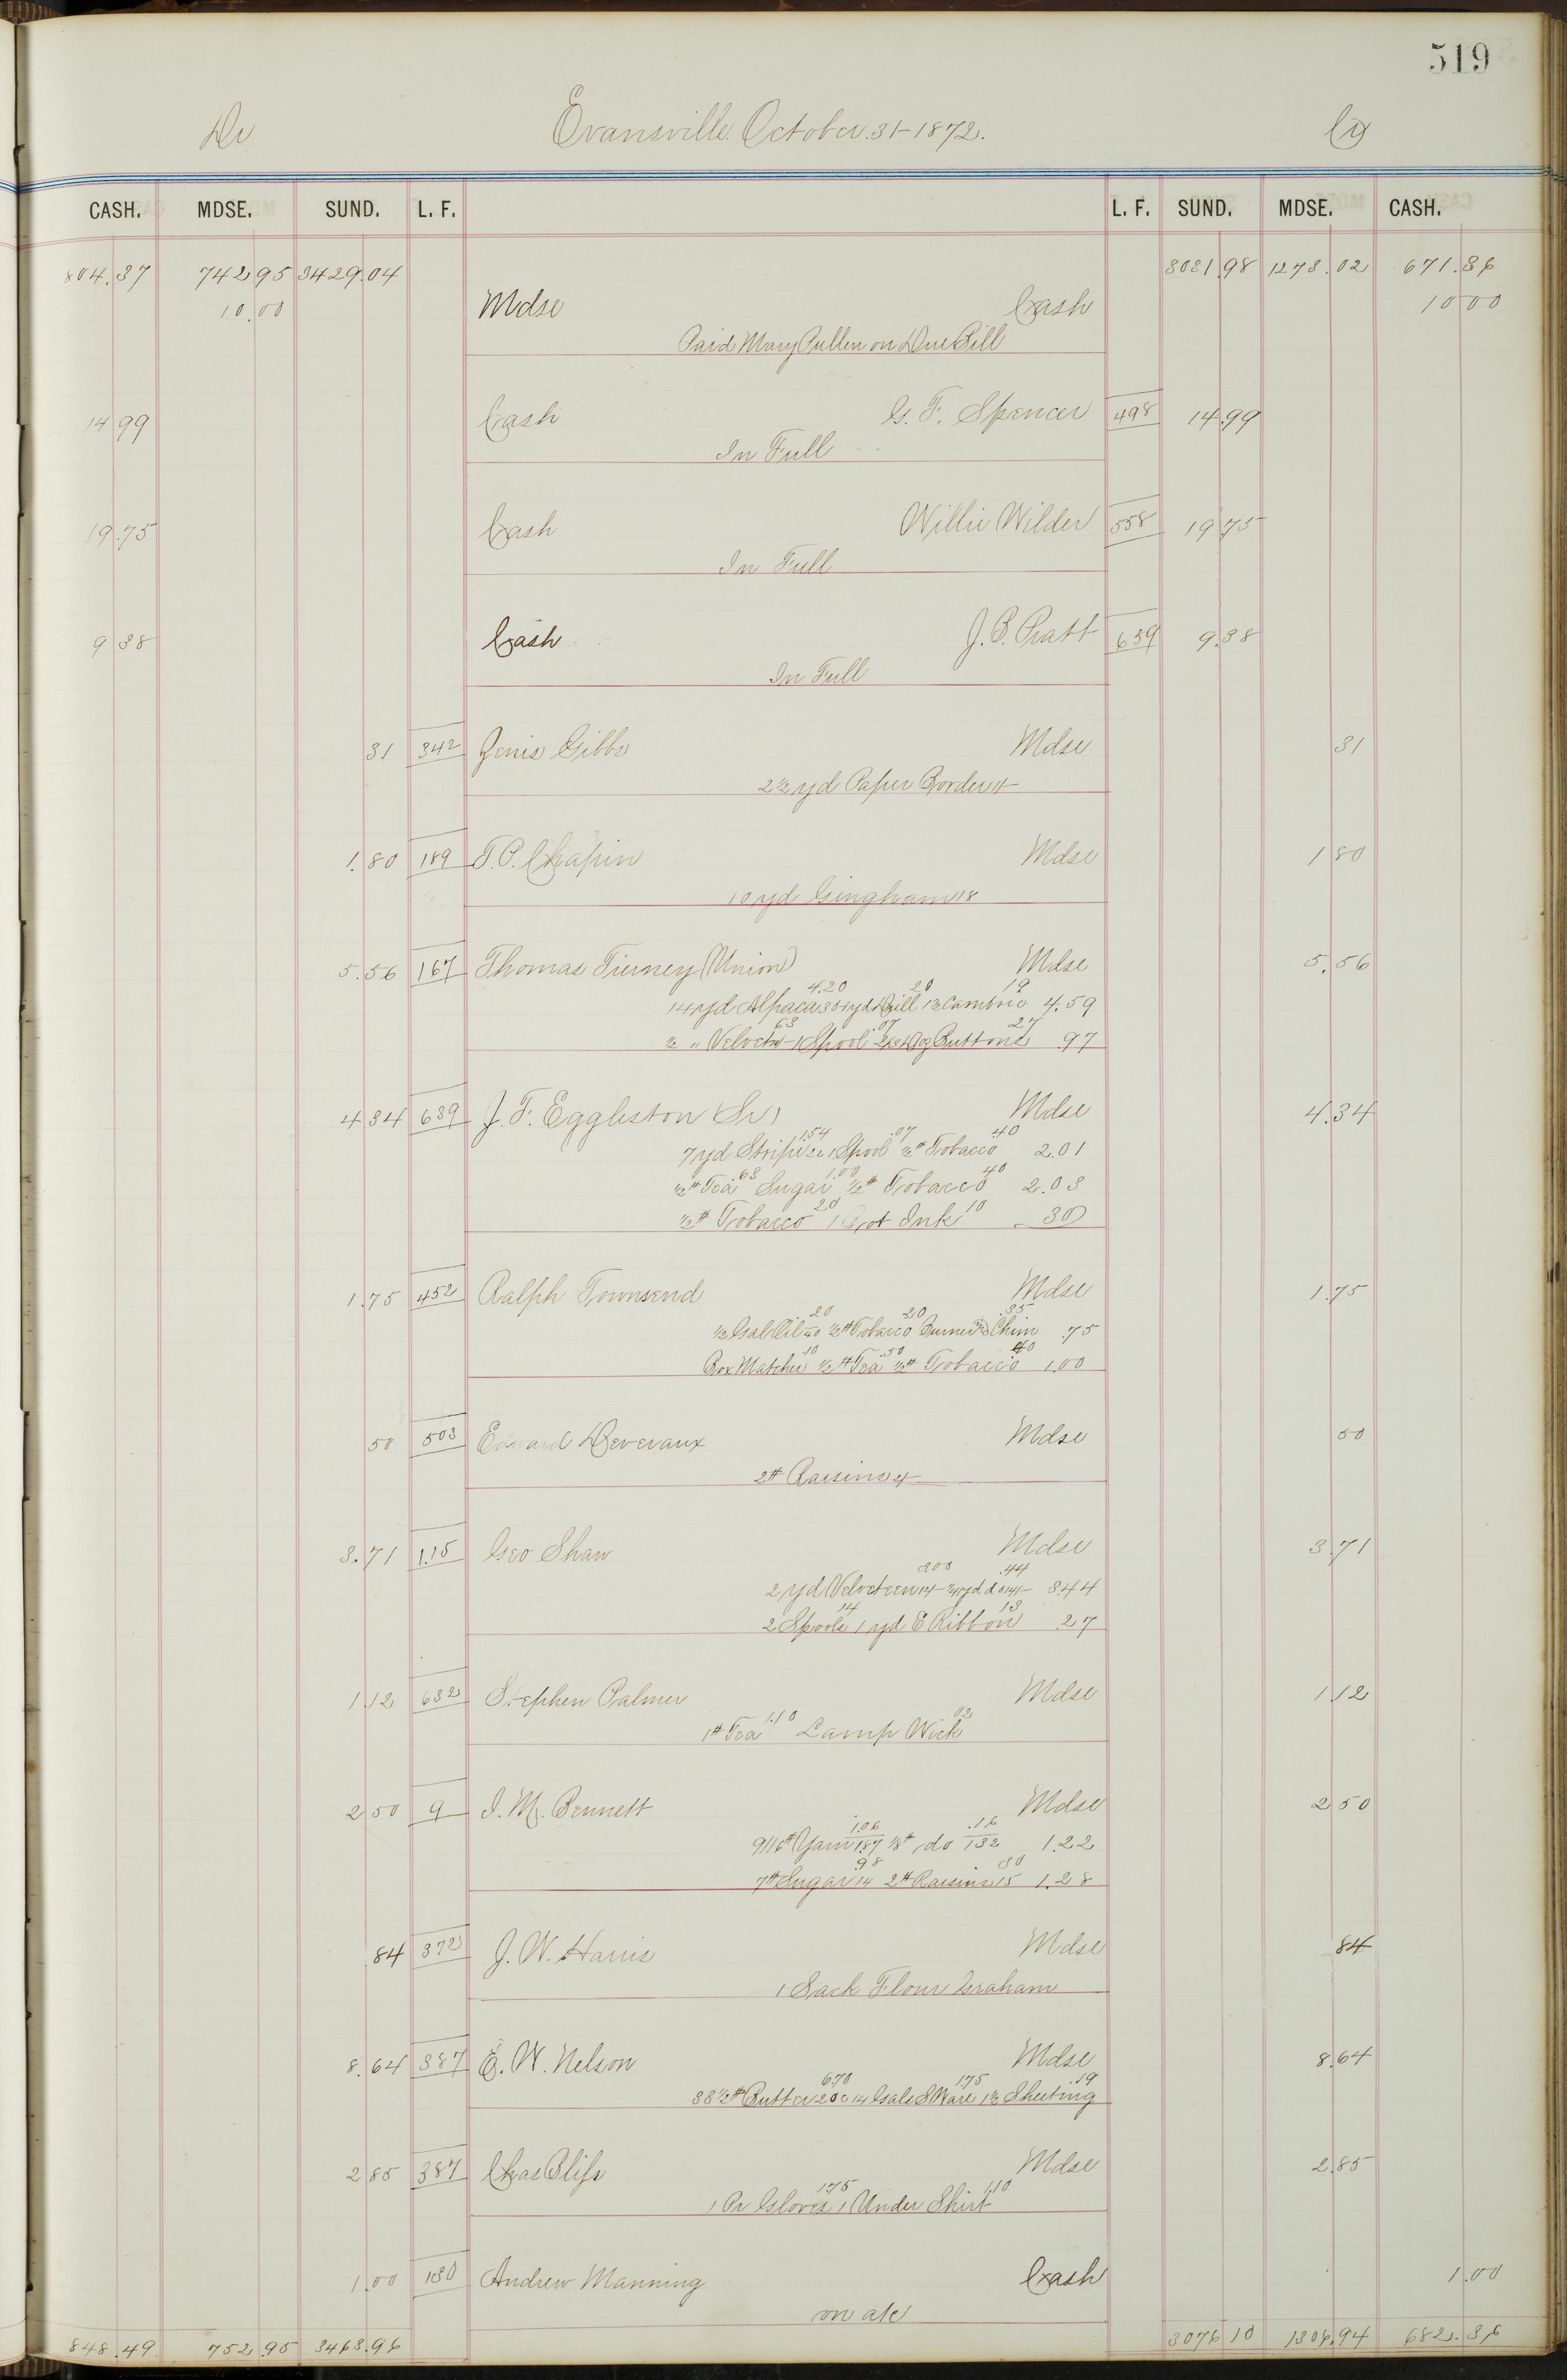 519
Dr Evansville. October. 31-1872. Cr
CASH. MDSE. SUND. L. F. L. F. SUND. MDSE. CASH.
804.37 742.95 3429.04 3031.98 1273.02 671.36
10.00 Mdse Cash 10.00
Paid Mary Pullen on Due Bill
14 99 Cash G. F. Spencer 498 14.99
In Full
19.75 Cash Willie Wilder 558 19 75
In Full
9 38 Cash J. B. Pratt 659 9.38
In Full
31 342 Jenis Gibbs Mdse 31
2½ yd Paper Border 1/-
1.80 189 T. P. Chapin Mdse 1 80
10 yd Gingham 18
5.56 167 Thomas Tierney (Union) Mdse 5.56
4.20 20 19
14 yd Alpaca 3/- 1 yd Drill 1½ Cambric 4.59
63 .07 27
½ " Velvet 1 Spool Doz Buttons .97
4 34 639 J. F. Eggleston (Sr) Mdse 4.34
1.54 .07 .40
7 yd Stripe 22 1 Spool ½# Tobacco 2.01
63 1.00 40
½# Tea Sugar ½# Tobacco 2.03
20 10
½# Tobacco 1 Bot Ink 30
1.75 452 Ralph Townsend Mdse 1.75
20 20 .35
½ Gal Oil 40 ½# Tobacco Burner & Chim .75
.10 .50 40
Box Matches ½# Tea ½# Tobacco 1.00
50 503 Edward Devevaux Mdse 50
2# Raisins 2/-
3.71 115 Geo Shaw Mdse 3.71
3.00 .44
2 yd Velveteen 12/- yd do 14/- 3.44
14 13
2 Spools 1 yd E Ribbon .27
1.12 632 Stephen Palmer Mdse 1.12
1.10 02
1# Tea Lamp Wick
2 50 9 I. M. Bennett Mdse 2 50
1.06 .16
9/16# Yarn 1.87 ⅛# do 132 1.22
.98 30
7# Sugar 14 2# Raisins 15 1.28
84 372 J. W. Harris Mdse 84
1 Sack Flour Graham
8.64 387 E. W. Nelson Mdse 8.64
6.70 1.75 .19
33½# Butter 20c 14 Gals S Ware 1½ Sheeting
2 85 387 Chas Bliss Mdse 2.85
1.75 1.10
1 Pr Gloves 1 Under Shirt
1.00 130 Andrew Manning Cash 1.00
on a/c
848.49 752.95 3463.96 3076 10 1306.94 682.36